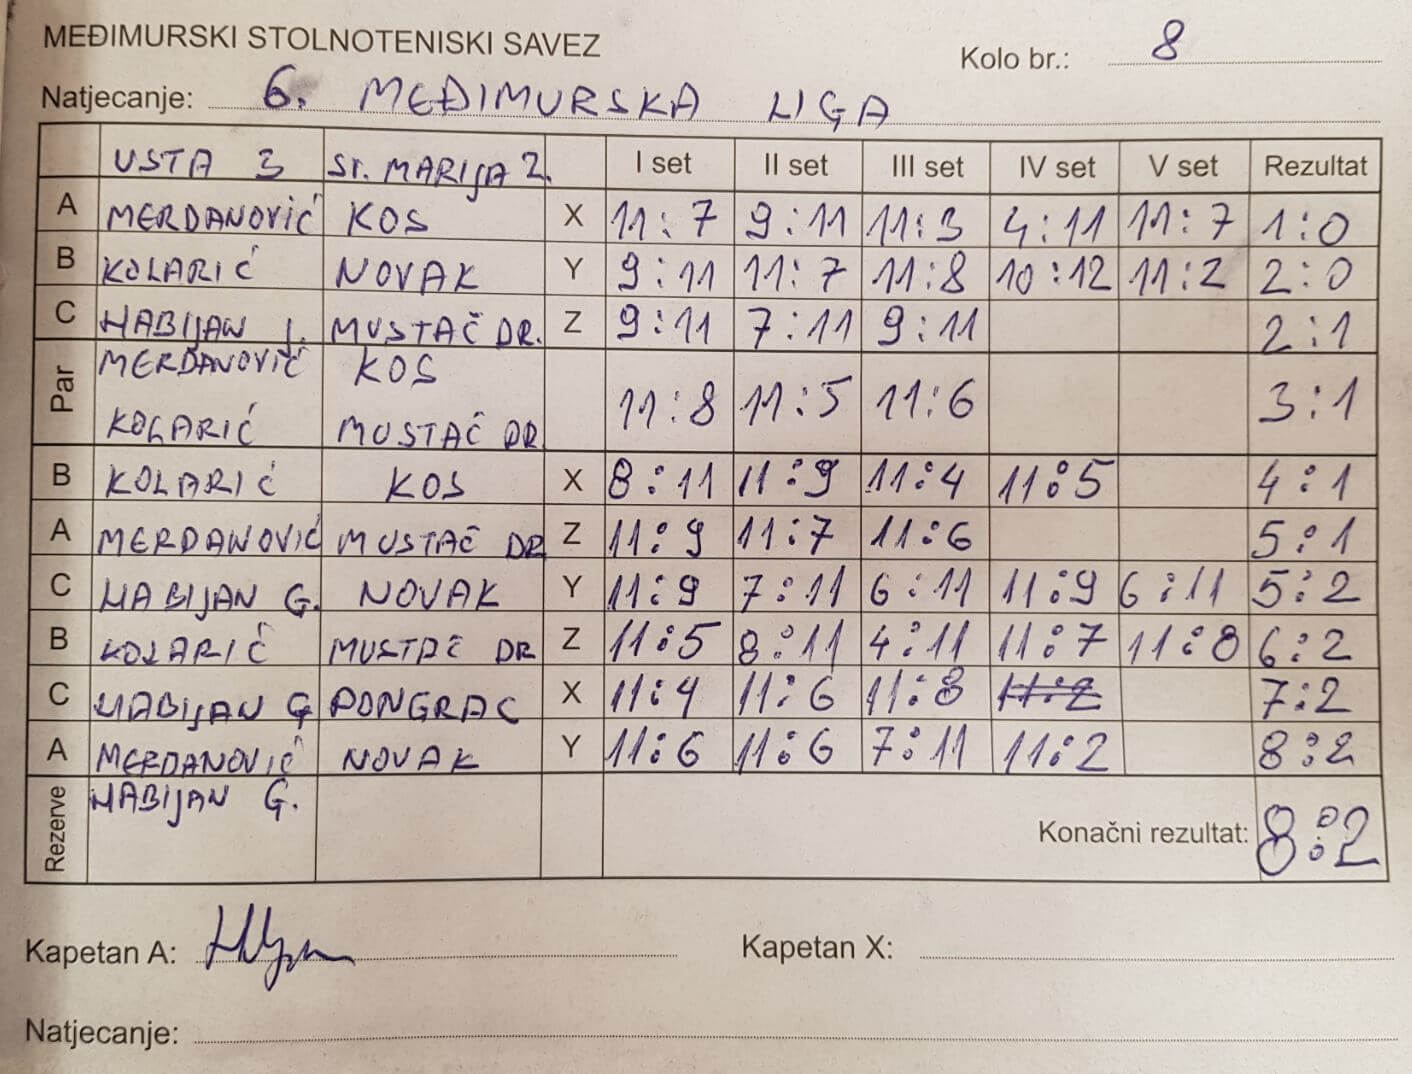 MEĐIMURSKI STOLNOTENISKI SAVEZ
Kolo br.: 8
Natjecanje: 6. MEĐIMURSKA LIGA
USTA 3 SV. MARIJA 2. I set II set III set IV set V set Rezultat
A MERDANOVIĆ KOS X 11:7 9:11 11:3 4:11 11:7 1:0
B KOLARIĆ NOVAK Y 9:11 11:7 11:8 10:12 11:2 2:0
C HABIJAN J. MUSTAČ DR. Z 9:11 7:11 9:11 2:1
Par MERDANOVIĆ KOS
KOLARIĆ MUSTAČ DR 11:8 11:5 11:6 3:1
B KOLARIĆ KOS X 8:11 11:9 11:4 11:5 4:1
A MERDANOVIĆ MUSTAČ DR Z 11:9 11:7 11:6 5:1
C HABIJAN G. NOVAK Y 11:9 7:11 6:11 11:9 6:11 5:2
B KOLARIĆ MUSTAČ DR Z 11:5 8:11 4:11 11:7 11:8 6:2
C HABIJAN G PONGRAC X 11:4 11:6 11:8 11:2 7:2
A MERDANOVIĆ NOVAK Y 11:6 11:6 7:11 11:2 8:2
Rezerve HABIJAN G.
Konačni rezultat: 8:2
Kapetan A:
Kapetan X:
Natjecanje: